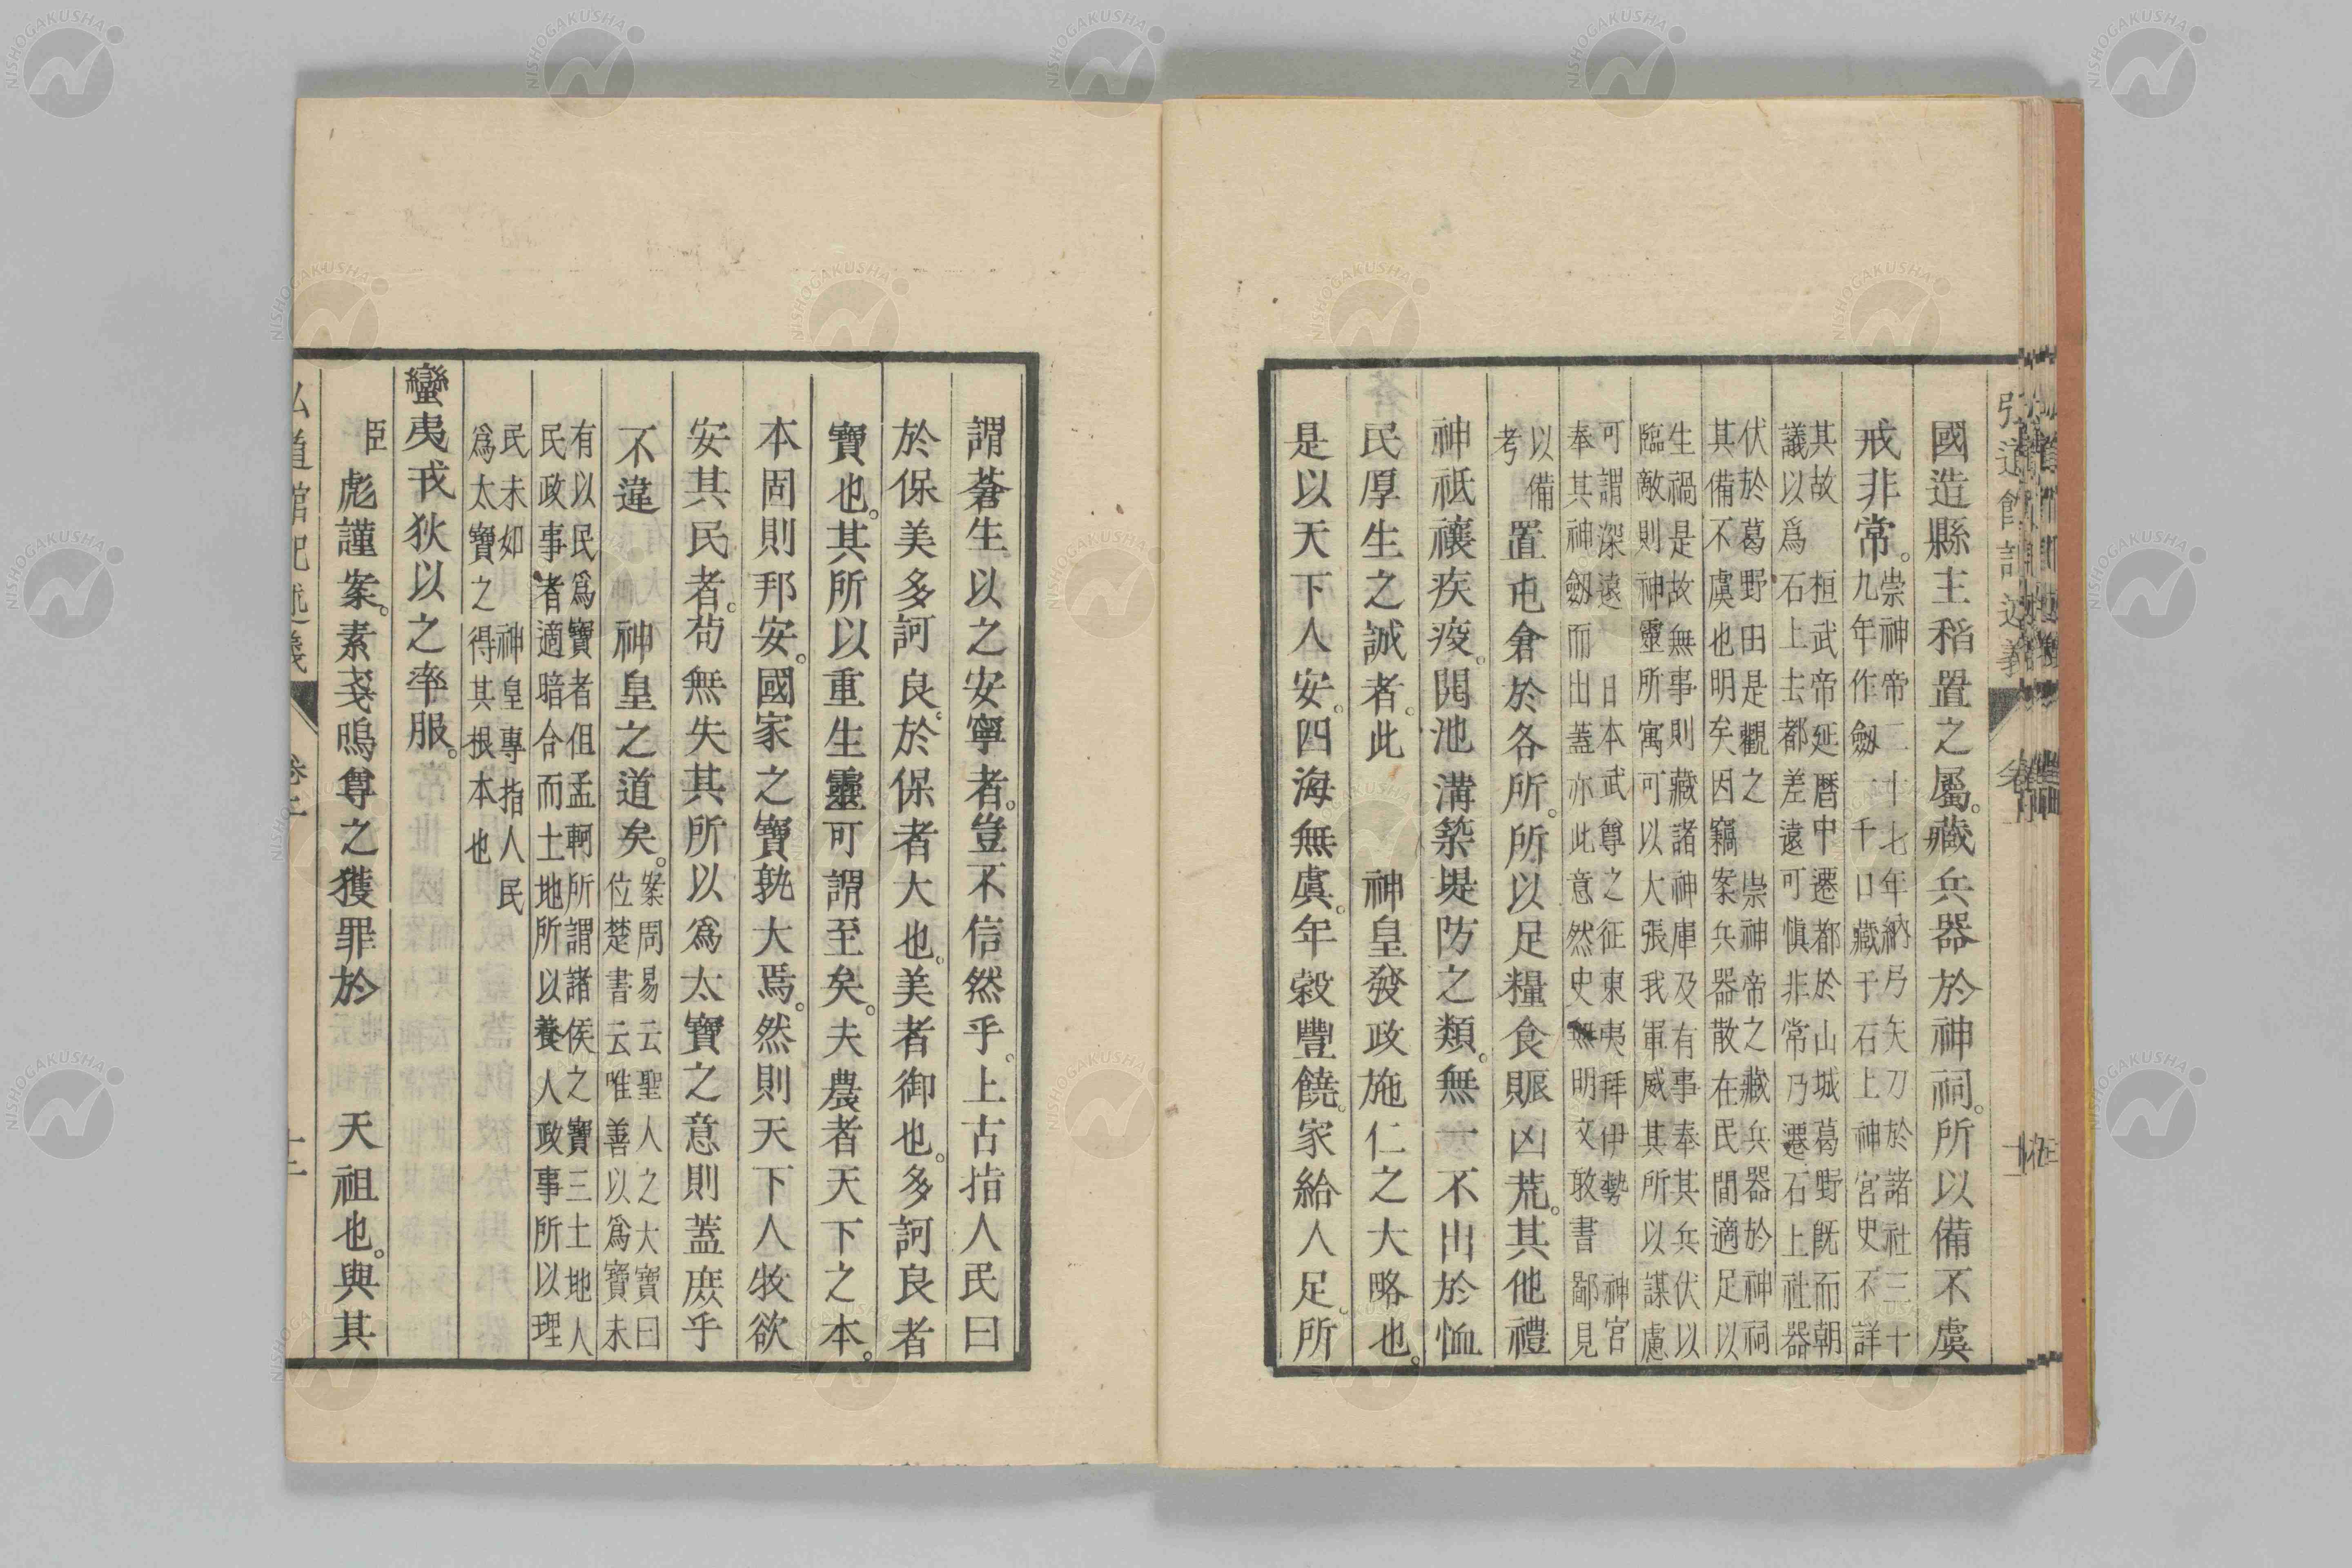 弘道館記述義
國造縣主稻置之屬。藏兵器於神祠。所以備不虞
戒非常。
崇神帝二十七年納弓矢刀於諸社三十
九年作劔一千口藏于石上神宮史不詳
其故　桓武帝延暦中遷都於山城葛野旣而朝
議以爲石上去都差遠可愼非常乃遷石上社器
伏於葛野田是觀之　崇神帝之藏兵器於神祠
其備不虞也明矣因竊案兵器散在民間適足以
生禍是故無事則藏諸神庫及有事奉其兵伏以
臨敵則神靈所寓可以大張我軍威其所以謀慮
可謂深遠　日本武尊之征東夷拜伊勢　神宮
奉其神劔而出蓋亦此意然史無明文敢書鄙見
以備
考
置屯倉於各所。所以足糧食賑凶荒。其他禮
神祇禳疾疫。開池溝築堤防之類。無一不出於恤
民厚生之誠者。此　神皇發政施仁之大略也。
是以天下人安。四海無虞。年穀豐饒。家給人足。所
謂蒼生以之安寧者。豈不信然乎。上古指人民曰
於保美多訶良。於保者大也。美者御也。多訶良者
寶也。其所以重生靈可謂至矣。夫農者天下之本。
本固則邦安。國家之寶孰大焉。然則天下人牧欲
安其民者。苟無失其所以爲太寶之意則蓋庶乎
不違　神皇之道矣。
案周易云聖人之大寶曰
位楚書云唯善以爲寶未
有以民爲寶者但孟軻所謂諸侯之寶三土地人
民政事者適暗合而土地所以養人政事所以理
民未如　神皇專指人民
爲太寶之得其根本也
蠻夷戎狄以之率服。
臣彪謹案。素戔嗚尊之獲罪於　天祖也。與其
弘道館記述義　卷上　十二
NISHOGAKUSHA